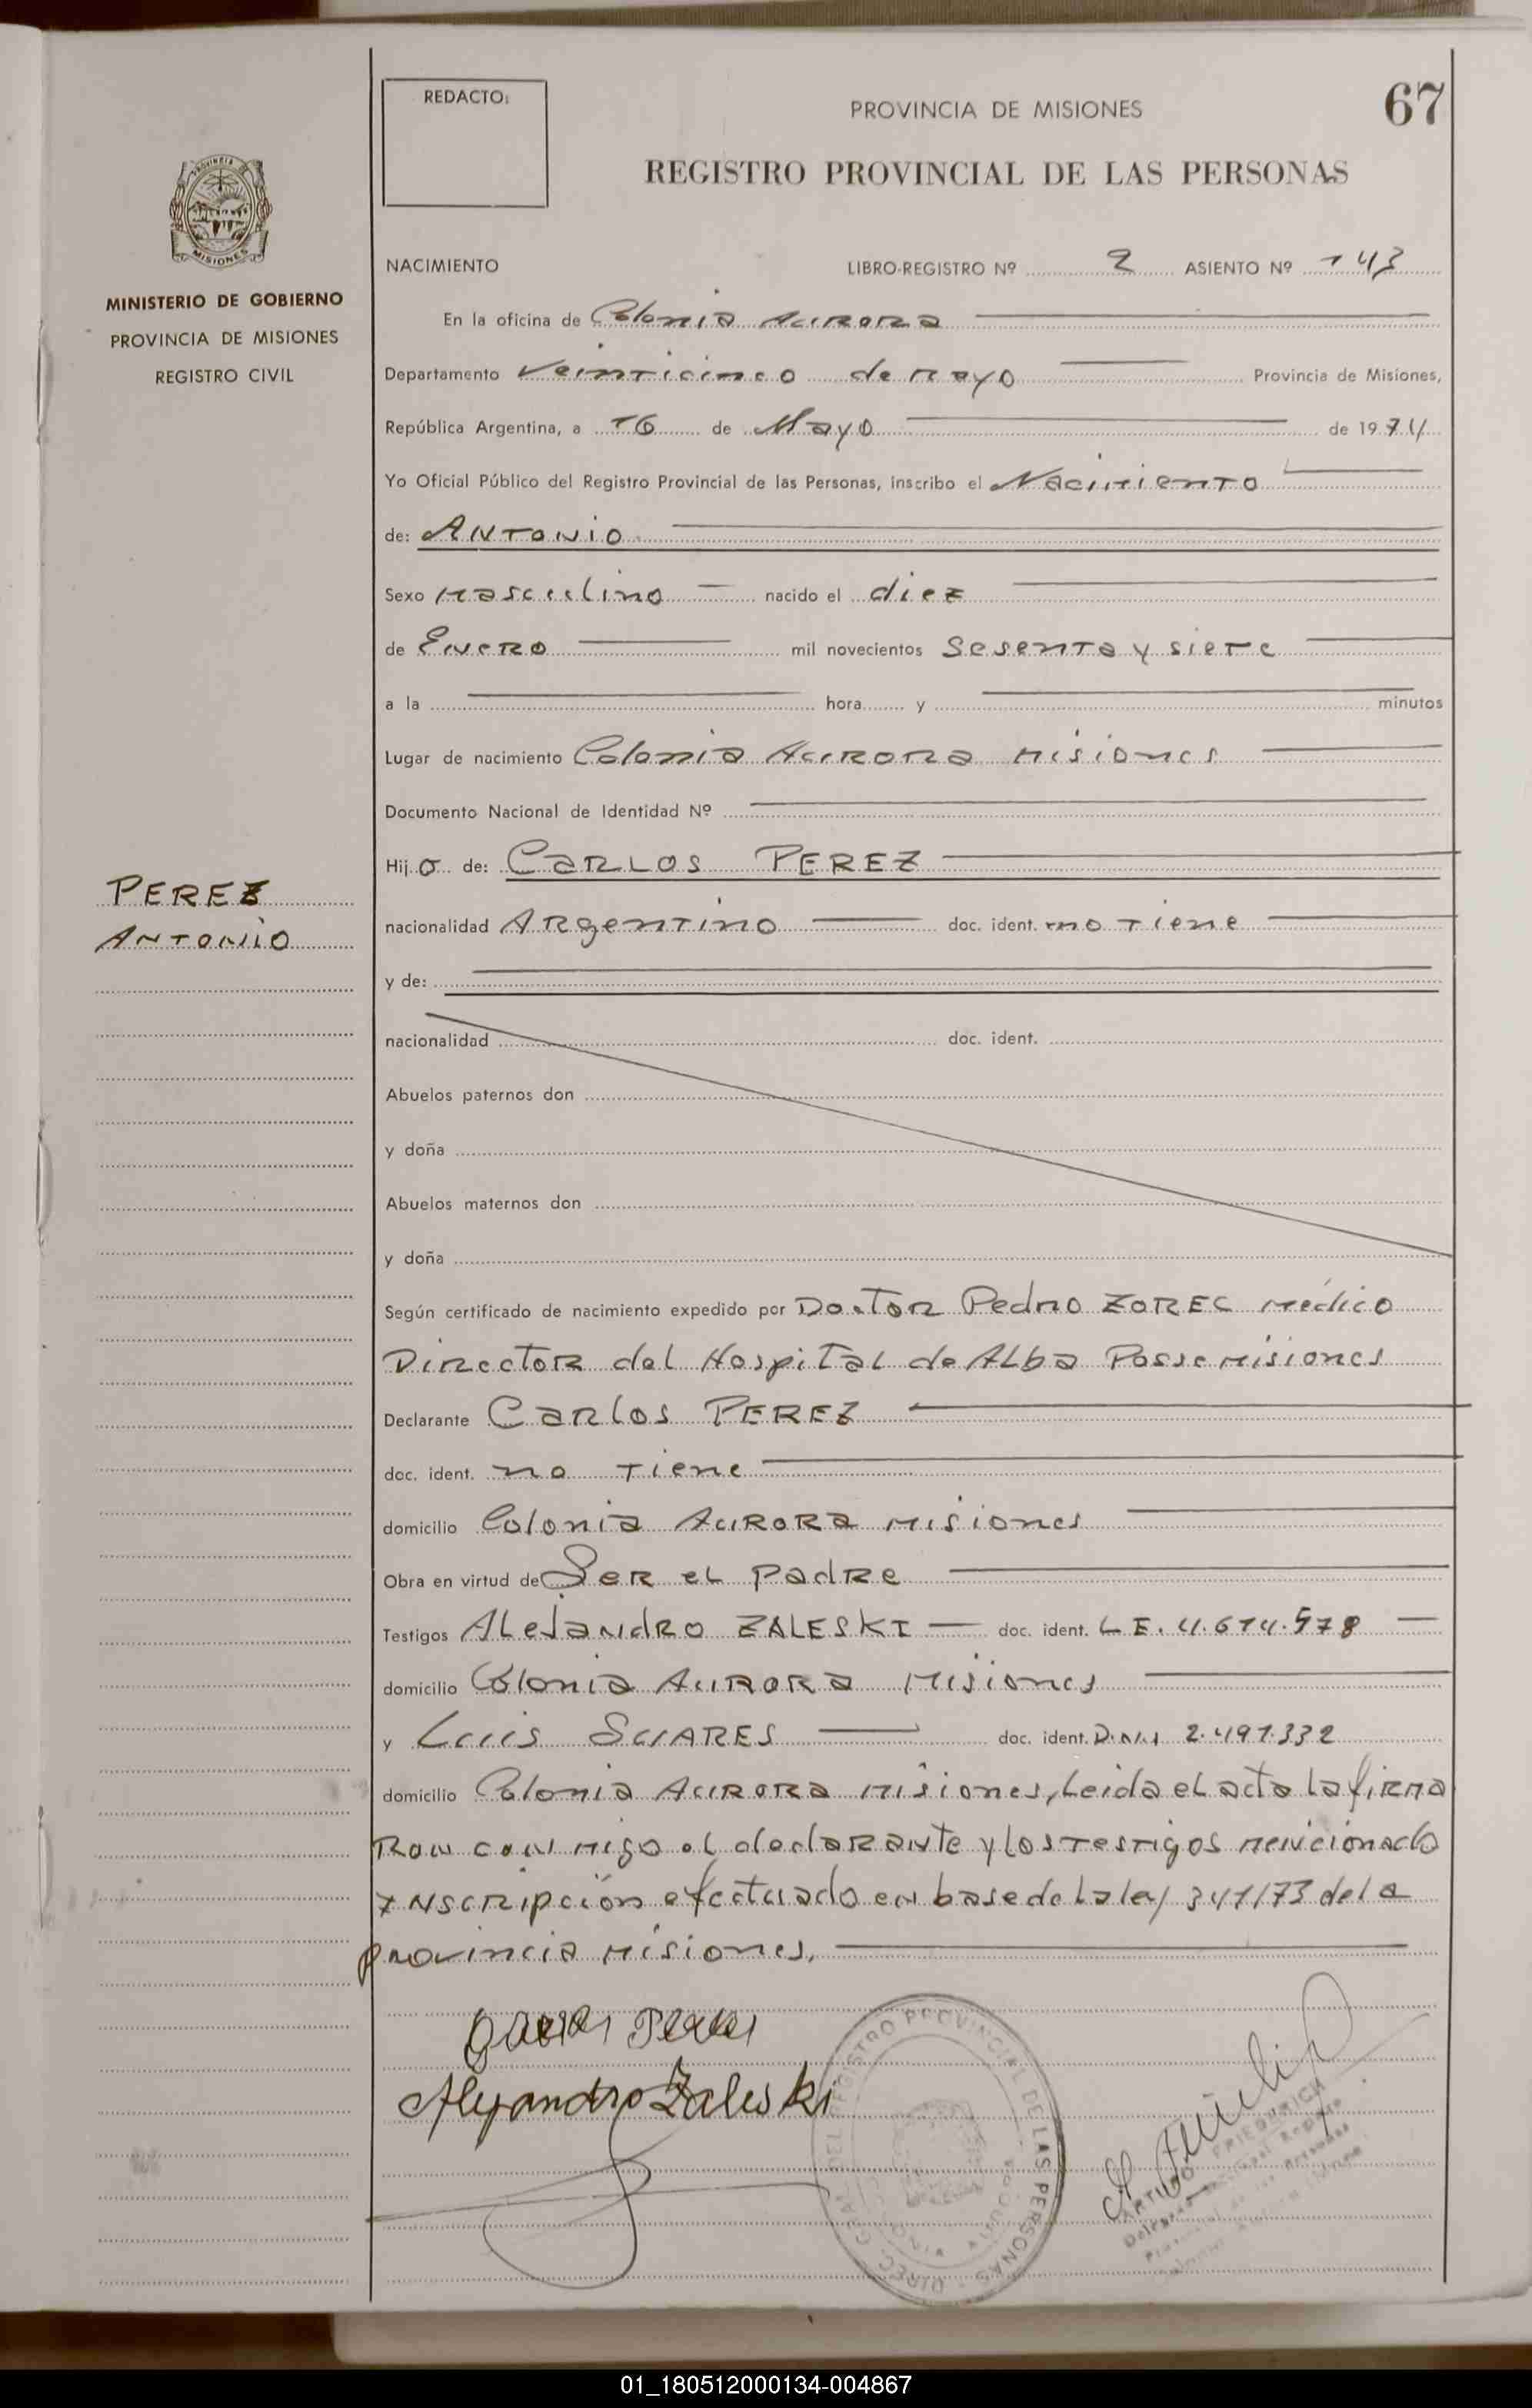 REDACTO:
PROVINCIA DE MISIONES
67
REGISTRO PROVINCIAL DE LAS PERSONAS
PROVINCIA
MISIONES
MINISTERIO DE GOBIERNO
PROVINCIA DE MISIONES
REGISTRO CIVIL
NACIMIENTO LIBRO-REGISTRO Nº 2 ASIENTO Nº 143
En la oficina de Colonia Aurora
Departamento Veinticinco de Mayo Provincia de Misiones,
República Argentina, a 16 de Mayo de 1974
Yo Oficial Público del Registro Provincial de las Personas, inscribo el Nacimiento
de: ANTONIO
Sexo Masculino nacido el diez
de Enero mil novecientos Sesenta y siete
a la hora y minutos
Lugar de nacimiento Colonia Aurora Misiones
Documento Nacional de Identidad Nº
Hijo de: CARLOS PEREZ
PEREZ
ANTONIO
nacionalidad Argentino doc. ident. no tiene
y de:
nacionalidad doc. ident.
Abuelos paternos don
y doña
Abuelos maternos don
y doña
Según certificado de nacimiento expedido por Doctor Pedro ZOREC Médico
Director del Hospital de Alba Posse Misiones
Declarante Carlos PEREZ
doc. ident. no tiene
domicilio Colonia Aurora Misiones
Obra en virtud de Ser el padre
Testigos Alejandro ZALESKI doc. ident. L E. 4.614.578
domicilio Colonia Aurora Misiones
y Luis SUARES doc. ident. D.N.I 2.491.332
domicilio Colonia Aurora Misiones, Leida el acta la firma
Ron conmigo el declarante y los testigos mencionado
Inscripción efectuado en base de la ley 341/73 de la
provincia Misiones.
Alejandro Zaleski
DIREC. GRAL. DEL REGISTRO PROVINCIAL DE LAS PERSONAS
FRIEDRICH
01_180512000134-004867